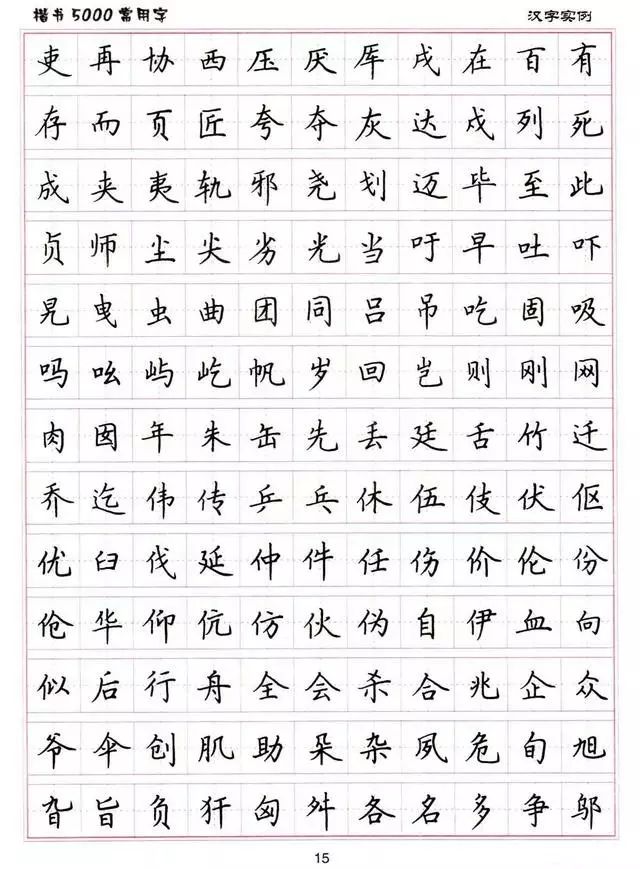 楷书5000常用字 汉字实例
吏再协西压厌厍戌在百有
存而页匠夸夺灰达戍列死
成夹夷轨邪尧划迈毕至此
贞师尘尖劣光当吁早吐吓
旯曳虫曲团同吕吊吃因吸
吗吆屿屹帆岁回岂则刚网
肉囡年朱缶先丢廷舌竹迁
乔迄伟传乒乓休伍伎伏伛
优臼伐延仲件任伤价伦份
伧华仰伉仿伙伪自伊血向
似后行舟全会杀合兆企众
爷伞创肌肋朵杂夙危旬旭
旮旨负犴匈舛各名多争邬
15